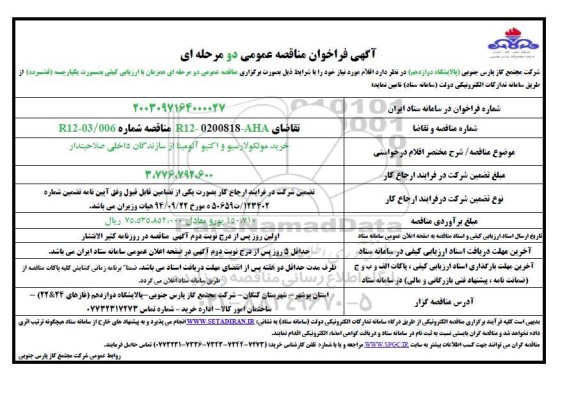 آگهی فراخوان مناقصه عمومی دو مرحله ای
شرکت مجتمع گاز پارس جنوبی (پالایشگاه دوازدهم) در نظر دارد اقلام مورد نیاز خود را با شرایط ذیل بصورت برگزاری مناقصه عمومی دو مرحله ای همزمان با ارزیابی کیفی بصورت یکپارچه (فشرده) از
طریق سامانه تدارکات الکترونیکی دولت (سامانه ستاد) تامین نماید:
شماره فراخوان در سامانه ستاد ایران
۲۰۰۳۰۹۷۱۶۴۰۰۰۰۲۷
شماره مناقصه و تقاضا
تقاضای R12- 0200818-AHA مناقصه شماره R12-03/006
موضوع مناقصه/ شرح مختصر اقلام درخواستی
خرید مولکولارسیو و اکتیو آلومینا از سازندگان داخلی صلاحیتدار
مبلغ تضمین شرکت در فرایند ارجاع کار
۳.۷۷۶.۷۹۲.۶۰۰
نوع تضمین شرکت در فرایند ارجاع کار
تضمین شرکت در فرایند ارجاع کار بصورت یکی از تضامین قابل قبول وفق آیین نامه تضمین شماره
۱۲۳۴۰۲/ت۵۰۶۵۹ ه مورخ ۹۴/۰۹/۲۲ هیات وزیران می باشد.
مبلغ برآوردی مناقصه
یورو معادل ۷۵.۵۳۵.۸۵۲.۰۰۰ ریال
تاریخ ارسال اسناد ارزیابی کیفی و اسناد مناقصه به صفحه اعلان عمومی سامانه ستاد
اولین روز پس از درج نوبت دوم آگهی مناقصه در روزنامه کثیر الانتشار
آخرین مهلت دریافت اسناد ارزیابی کیفی در سامانه ستاد
حداقل ۵ روز پس از درج نوبت دوم آگهی در صفحه اعلان عمومی سامانه ستاد ایران می باشد.
آخرین مهلت بارگذاری اسناد ارزیابی کیفی ، پاکات الف و ب و ج
(ضمانت نامه ، پیشنهاد فنی بازرگانی و مالی) در سامانه ستاد
ظرف مدت حداقل دو هفته پس از انقضای مهلت دریافت اسناد می باشد. ضمنا برنامه زمانی گشایش کلیه پاکات مناقصه از
طریق سامانه ستاد اعلان می گردد.
آدرس مناقصه گزار
استان بوشهر – شهرستان کنگان – شرکت مجتمع گاز پارس جنوبی –پالایشگاه دوازدهم (فازهای ۲۲&۲۴)
ساختمان امور کالا – اداره خرید - شماره تماس ۰۷۷۳۲۳۱۷۲۷۳
بدیهی است کلیه فرآیند برگزاری مناقصه الکترونیکی از طریق درگاه سامانه تدارکات الکترونیکی دولت (سامانه ستاد) به نشانی: WWW.SETADIRAN.IR انجام می پذیرد و به پیشنهاد های خارج از سامانه ستاد هیچگونه ترتیب اثری
داده نخواهد شد و مناقصه گران بایستی نسبت به ثبت نام در سامانه ستاد و دریافت گواهی امضاء الکترونیکی اقدام نمایند.
مناقصه گران می توانند جهت کسب اطلاعات بیشتر به سایت WWW.SPGC.IR مراجعه و یا با شماره تلفن کارشناس خرید: تماس حاصل فرمایند.
روابط عمومی شرکت مجتمع گاز پارس جنوبی